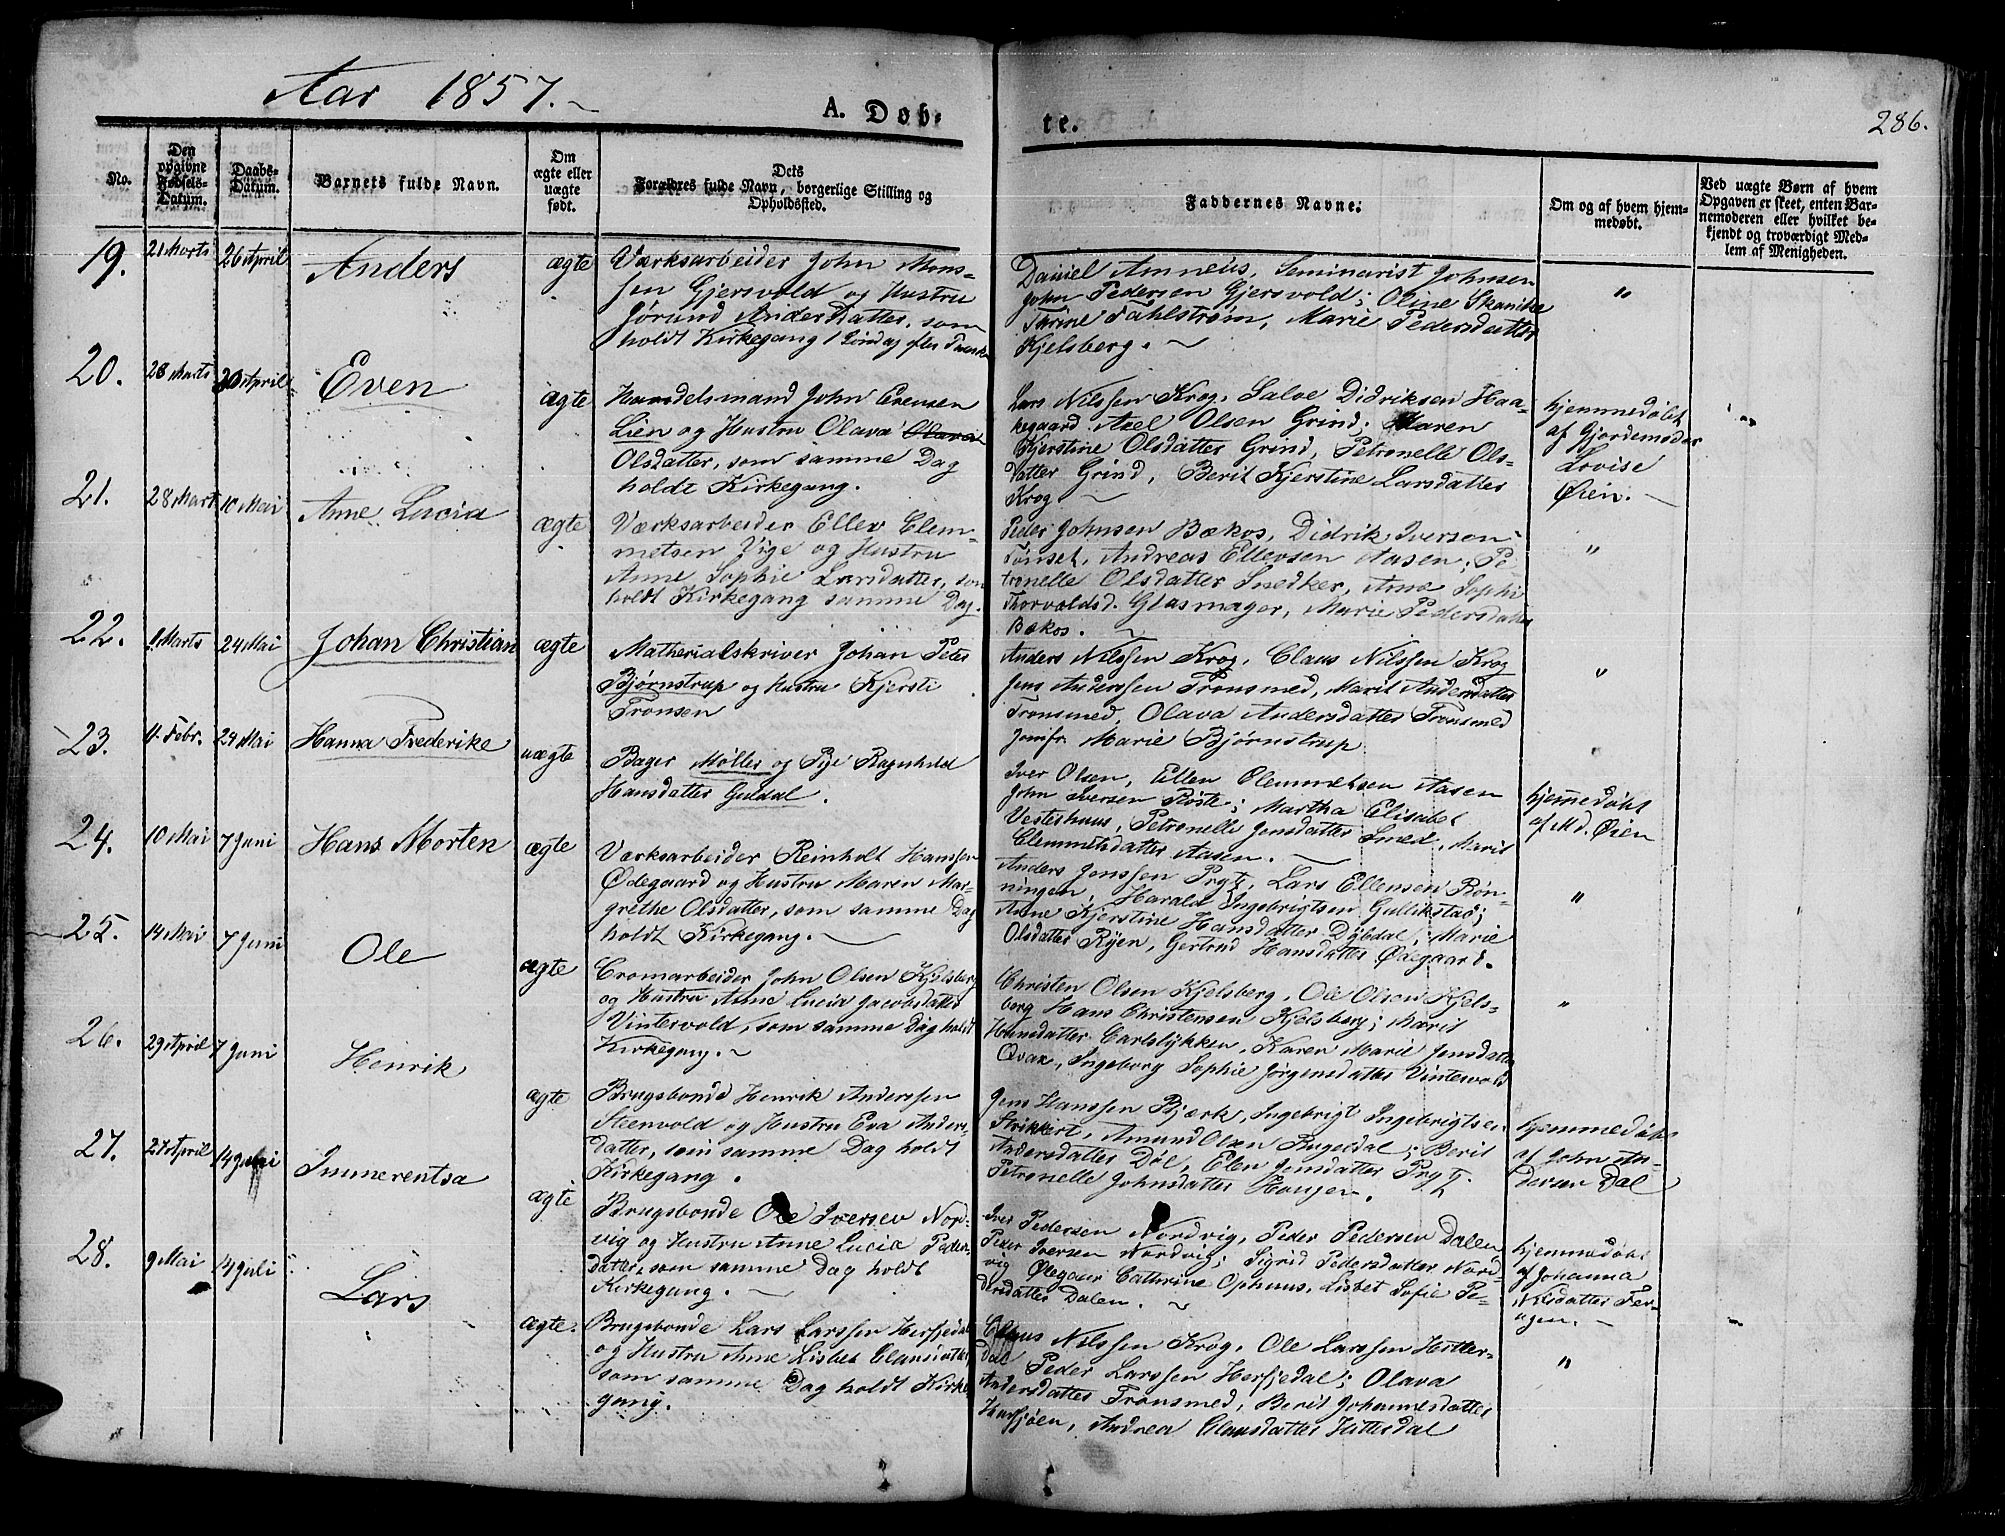 Aar 1857.
A. Døb-
te.
286.
No.
Den opgivne Fødsels-Datum.
Daabs-Datum.
Barnets fulde Navn.
Om ægte eller uægte født.
Dets Forældres fulde Navn, borgerlige Stilling og Opholdssted.
Faddernes Navne.
Om og af hvem hjemmedøbt.
Ved uægte Børn af hvem
Opgaven er skeet, enten Bar-
nemoderen eller hvilket be-
kjendt og troværdigt Med-
lem af Menigheden.
19. 21 Marts 26 April Anders ægte
Værksarbeider John Mons-
sen Gjersvold og Hustru
Jørund Andersdatter, som
holdt Kirkegang
Daniel Amneus, Seminarist Johnsen
John Pedersen Gjersvold; Oline Skanke
Trine Fahlstrøm, Marie Pedersdatter
Kjelsberg.
"
20. 28 Marts April Even ægte
Handelsmand John Evensen
Lien og Hustru Olava
Olsdatter, som samme Dag
holdt Kirkegang.
Lars Nilssen Krog, Salve Didriksen Haa-
kegaard. Axel Olsen Grind; Maren
Kjerstine Olsdatter Grind, Petronelle Ols-
datter Grind, Berit Kjerstine Larsdatter
Krog
hjemmedøbt
af Gjordemoder
Lovise
Øien.
21. 28 Marts 10 Mai Anne Lucia ægte
Værksarbeider Ellev Clem-
metsen Vige og Hustru
Anne Sophie Larsdatter, som
holdt Kirkegang samme Dag.
Peder Johnsen Bækos, Didrik Iversen
Tønset, Andreas Ellevsen Aasen; Pe-
tronelle Olsdatter Snedker, Anne Sophi
Thorvaldsd. Glasmager, Marie Pedersdatter
Bækos.
"
22. Marts 24 Mai Johan Christian ægte
Matherialskriver Johan Peter
Bjørnstrup og Hustru Kjersti
Tronsen
Anders Nilssen Krog, Claus Nilssen Krog
Jens Anderssen Tronsmed, Marit Andersdatter
Tronsmed, Olava Andersdatter Tronsmed
Jomfr. Marie Bjørnstrup
"
23. Febr. 24 Mai Hanna Frederike uægte
Bager Møller og Pige Ragnhild
Hansdatter Guldal.
Iver Olsen, Ellen Clemmetsen Aasen
John Iversen Røste; Martha Elisabet
Vesterhuus, Petronelle Jonsdatter Smed, Marit
Clemmetsdatter Aasen.
hjemmedøbt
af Md. Øien
24. 10 Mai 7 Juni Hans Morten ægte
Værksarbeider Reinholt Hanssen
Ødegaard og Hustru Maren Mar-
grethe Olsdatter, som samme Dag
holdt Kirkegang.
Anders Jenssen Prytz, Lars Ellensen Røn-
ningen, Harald Ingebrigtsen Gullikstad;
Anne Kjerstine Hansdatter Dybdal, Marie
Olsdatter Ryen, Gertrud Hansdatter Ødegaard.
"
25. 14 Mai 7 Juni Ole ægte
Cromarbeider John Olsen Kjelsberg
og Hustru Anne Lucia Jacobsdatter
Vintervold, som samme Dag holdt
Kirkegang.
Christen Olsen Kjelsberg, Ole Olsen Kjels-
berg Hans Christensen Kjelsberg; Marit
Hansdatter Carlslykken, Karen Marie Jensdatter
Ingeborg Sophie Jørgensdatter Vintervold
"
26. 29 April 7 Juni Henrik ægte
Brugsbonde Henrik Anderssen
Steenvold og Hustru Eva Anders-
datter, som samme Dag holdt
Kirkegang.
Jens Hanssen Bjærk, Ingebrigt Ingebrigtsen
Strikkert, Amund Olsen; Berit
Andersdatter Døl, Elen Jensdatter Prytz.
Petronelle Johnsdatter Houger.
hjemmedøbt
af John An-
dersen Dal
27. 27 April 14 Immerentsa ægte
Brugsbonde Ole Iversen Nord-
vig og Hustru Anne Lucia Peder-
datter, som samme Dag holdt
Kirkegang.
Iver Pedersen Nordvig, Peder Pedersen Dalen
Peder Iversen Nordvig; Sigrid Pedersdatter Nord-
vig Cathrine Ophuus, Lisbet Sofie Pe-
dersdatter Dalen.
hjemmedøbt
af Johanna
Nilsdatter Fer-
agen.
28. 9 Mai 14 Juli Lars ægte.
Brugsbonde Lars Larssen Herfjedal
og Hustru Anne Lisbet Clausdatter,
som samme Dag holdt Kirke-
gang.
Claus Nilssen Krog, Ole Larssen Hitter-
dal Peder Larssen Herfjedal; Olava
Andersdatter Tronsmed, Berit Johannesdatter
Harsjøen, Andrea Clausdatter Hittersdal
"